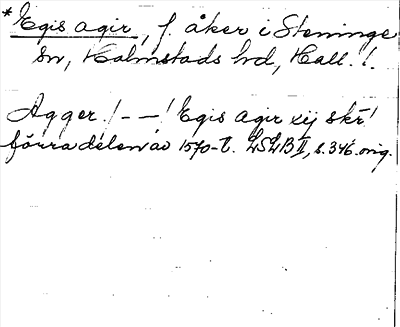 *Egis agir, f. åker i Steninge
sn, Halmstads hd, Hall. !.
Agger ! – – ! Egis agir xij skr !
förra delen av 1570-t. LSLB II, s. 346. orig.